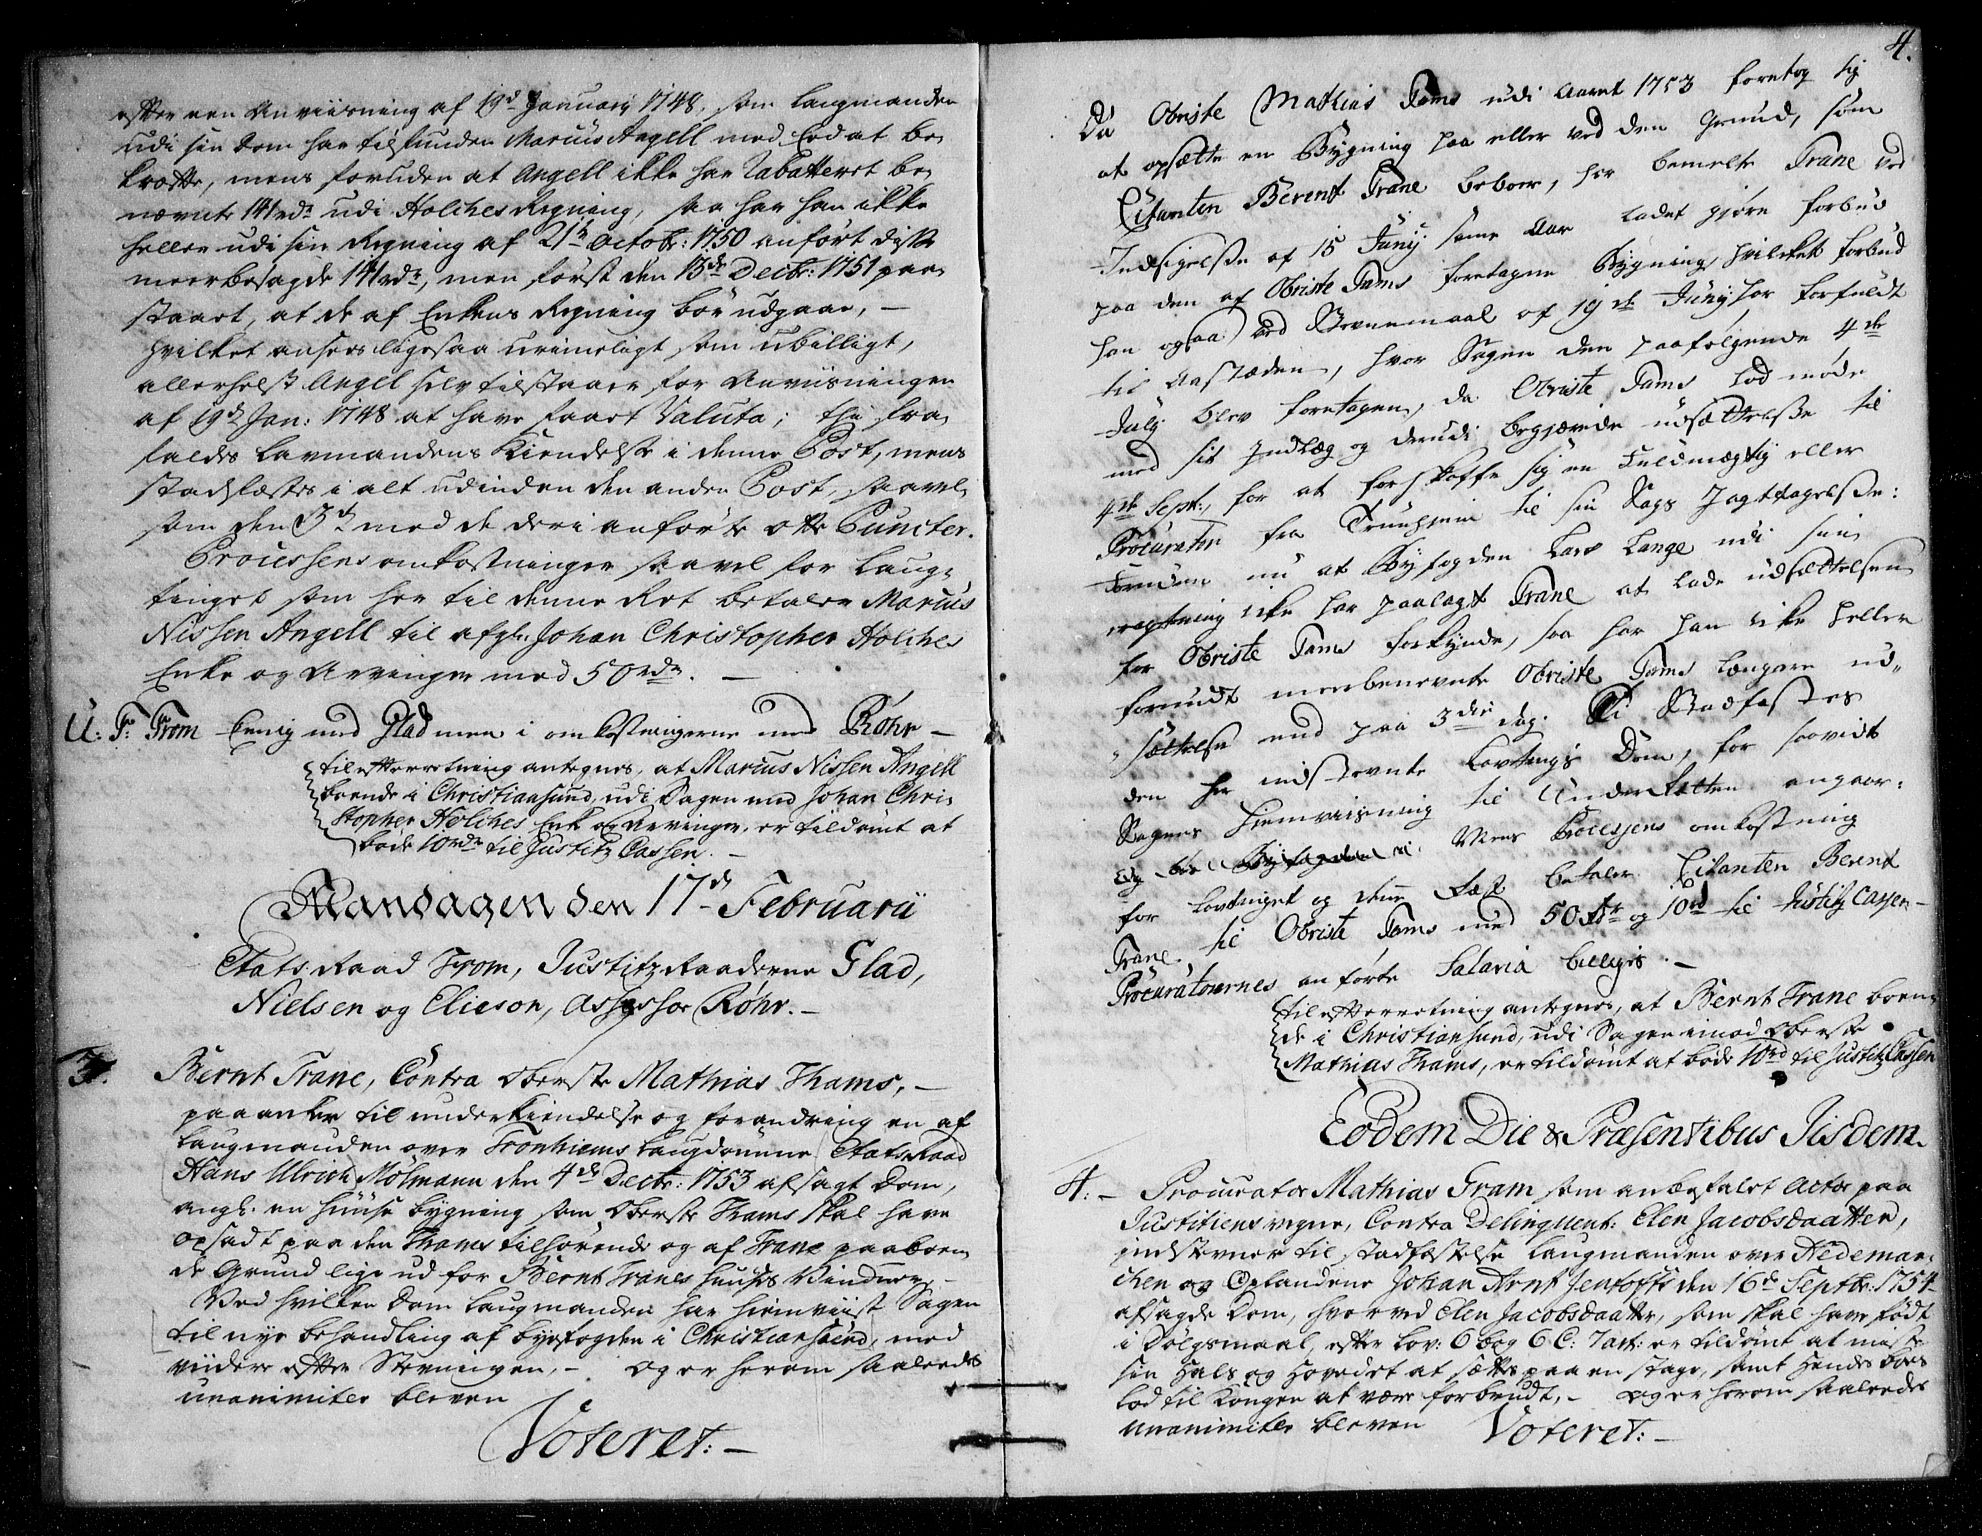 efter een Anviisning af 19de January 1748. som Laugmanden
udi sin Dom har tilfunden Marcus Angell med Eed at be
kræfte, mens foruden at Angell ikke har Rabatteret be
nævnte 141rdr udi Holches Regning, saa har han ikke
heller udi sin Regning af 21de Octobr: 1750 anført diste
meerbesagde 141rdr, men først den 13de Decbr: 1751 paa
staaet, at de af Enkens Regning bør udgaae, —
hvilket ansees ligesaa urimeligt som ubilligt,
allerhelst Angel selv tilstaaer for Anviisningen
af 19de Jan: 1748 at have faaet Valuta; thi fra
faldes Lavmandens Kiendelse i denne Post, mens
stadfæstes i alt udinden den anden Post, saavel
som den 3de med de deri anførte otte Puncter.
Processens omkostninger saavel for Laug-
tinget som her til denne Ret betaler Marcus
Nissen Angell til afgl. Johan Christopher Holches
Enke og Arvinger med 50rdr. —
U: F: From Eenig med Glad men i omkostningerne med Röhr —
til efterretning antegnes, at Marcus Nissen Angell
boende i Christiansund, udi Sagen med Johan Chri-
stopher Holches Enke og Arvinger, er tildømt at
bøde 10rdr til Justitz Cassen. —
Mandagen den 17de Februarii
Etats Raad From, Justitz Raaderne Glad,
Nielsen og Elieson, Assessor Röhr. —
3. Bernt Trane, Contra Oberste Mathias Thams, —
paaanker til underkiendelse og forandring en af
Laugmanden over Tronhiems Laugdømme Etats Raad
Hans Ulrich Mölmann den 4de Decbr: 1753 afsagt Dom,
angl. en huuse bygning som Oberste Thams skal have
opsadt paa den Thams tilhørende og af Trane paaboen
de Grund lige ud for Bernt Tranes Huuses Vinduer, —
Ved hvilken Dom Laugmanden har hiemviist Sagen
til nye behandling af byefogden i Christiansund, med
viidere efter Stevningen, — og er herom saaledes
unanimiter bleven
Voteret: —
4.
Da Obriste Mathias Tams udi Aaret 1753 foretog sig
at opsætte en Bygning paa eller ved den Grund, som
Citanten Berent Trane beboer, har bemelte Trane ved
Indsigelse af 15 Junij samme Aar ladet giøre forbud
paa den af Obriste Tams foretagne Bygning, hvilket forbud
han ogsaa ved Stevnemaal af 19de Junij har forfuldt
til Aastæden, hvor Sagen den paafølgende 4de
Julij blev foretagen, da Obriste Tams lod møde
med sit Indlæg og derudi begjærede udsættelse til
4de Septr., for at forskaffe sig en Fuldmægtig eller
Procurator fra Trundhjem til sin Sags Jagttagelse:
Endskiøn nu at Byfogden Lars Lange udi sin
ragtning ikke har paalagt Trane at lade udsættelsen
for Obriste Tams forkynde, saa har han ikke heller
forundt meerbenevnte Obriste Tams længere ud-
sættelse end paa 3die dag. Thi Stadfæstes
den her indstevnte Lavtings Dom, for saavidt
Sagens Hiemviisning til Underretten angaar.
Mens Processens omkostning
for Lavtinget og denne Ræt betaler Citanten Berent
Trane til Obriste Tams med 50rdr og 10rd til Justitz Cassen —
Procuratorernes anførte Salaria billiges. —
til efterretning antegnes, at Bernt Trane boen-
de i Christiansund, udi Sagen imod Oberste
Mathias Thams, er tildømt at bøde 10rd til Justitz Cassen
Eodem Die & Præsentibus Jisdem.
4. — Procurator Mathias Gram som anbefalet Actor paa
Justitiens vegne, Contra Delinqvent: Elen Jacobsdaatter,
indstevner til stadfæstelse Laugmanden over Hedemar-
chen og Oplandene Johan Arnt Jentofts den 16de Septbr: 1754
afsagde Dom, hvorved Elen Jacobsdaatter, som skal have født
i Dølgsmaal, efter Lov: 6 bog 6 C: 7 art: er tildømt at miste
sin Hals og Hovedet at sættes paa en stage, samt Hendes boes
lod til Kongen at være forbrudt, — og er herom saaledes
unanimiter bleven Voteret: —